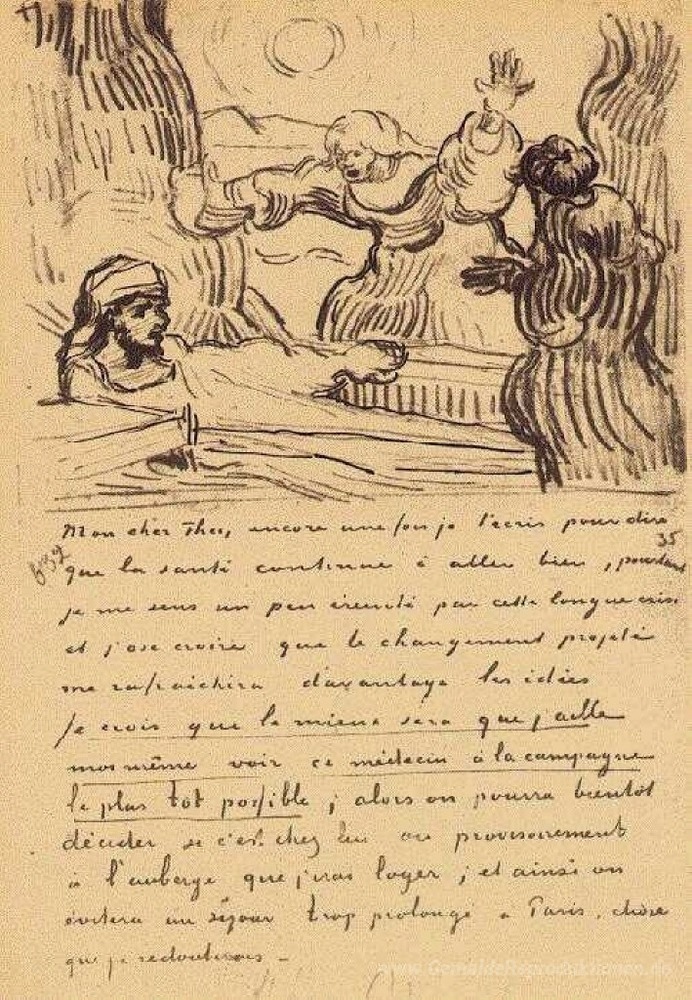 Mon cher Theo, encore une fois je t'écris pour dire
35
639
que la santé continue à aller bien, pourtant
je me sens un peu éreinté par cette longue crise
et j'ose croire que le changement projeté
me rafraichira davantage les idées
Je crois que le mieux sera que j'aille
moi même voir ce médecin à la campagne
le plus tôt possible ; alors on pourra bientôt
décider si c'est chez lui ou provisoirement
à l'auberge que j'irai loger ; et ainsi on
évitera un séjour trop prolongé à Paris, chose
que je redouterais –